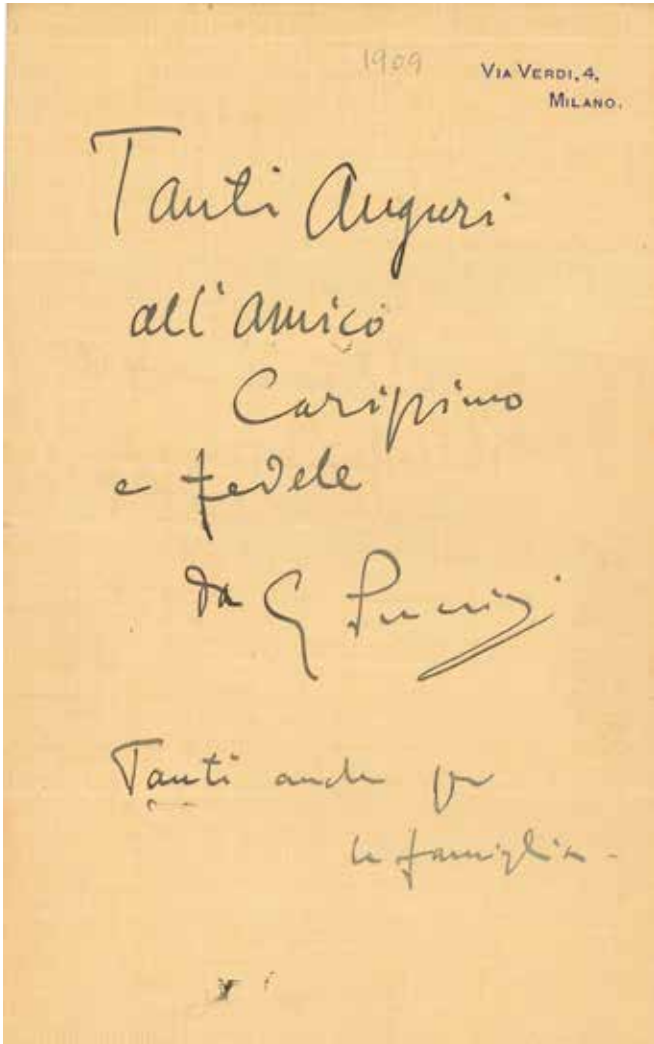 1909
VIA VERDI, 4,
MILANO.
Tanti Auguri
all'amico
Carissimo
e fedele
da G Puccini
Tanti anche per
la famiglia.